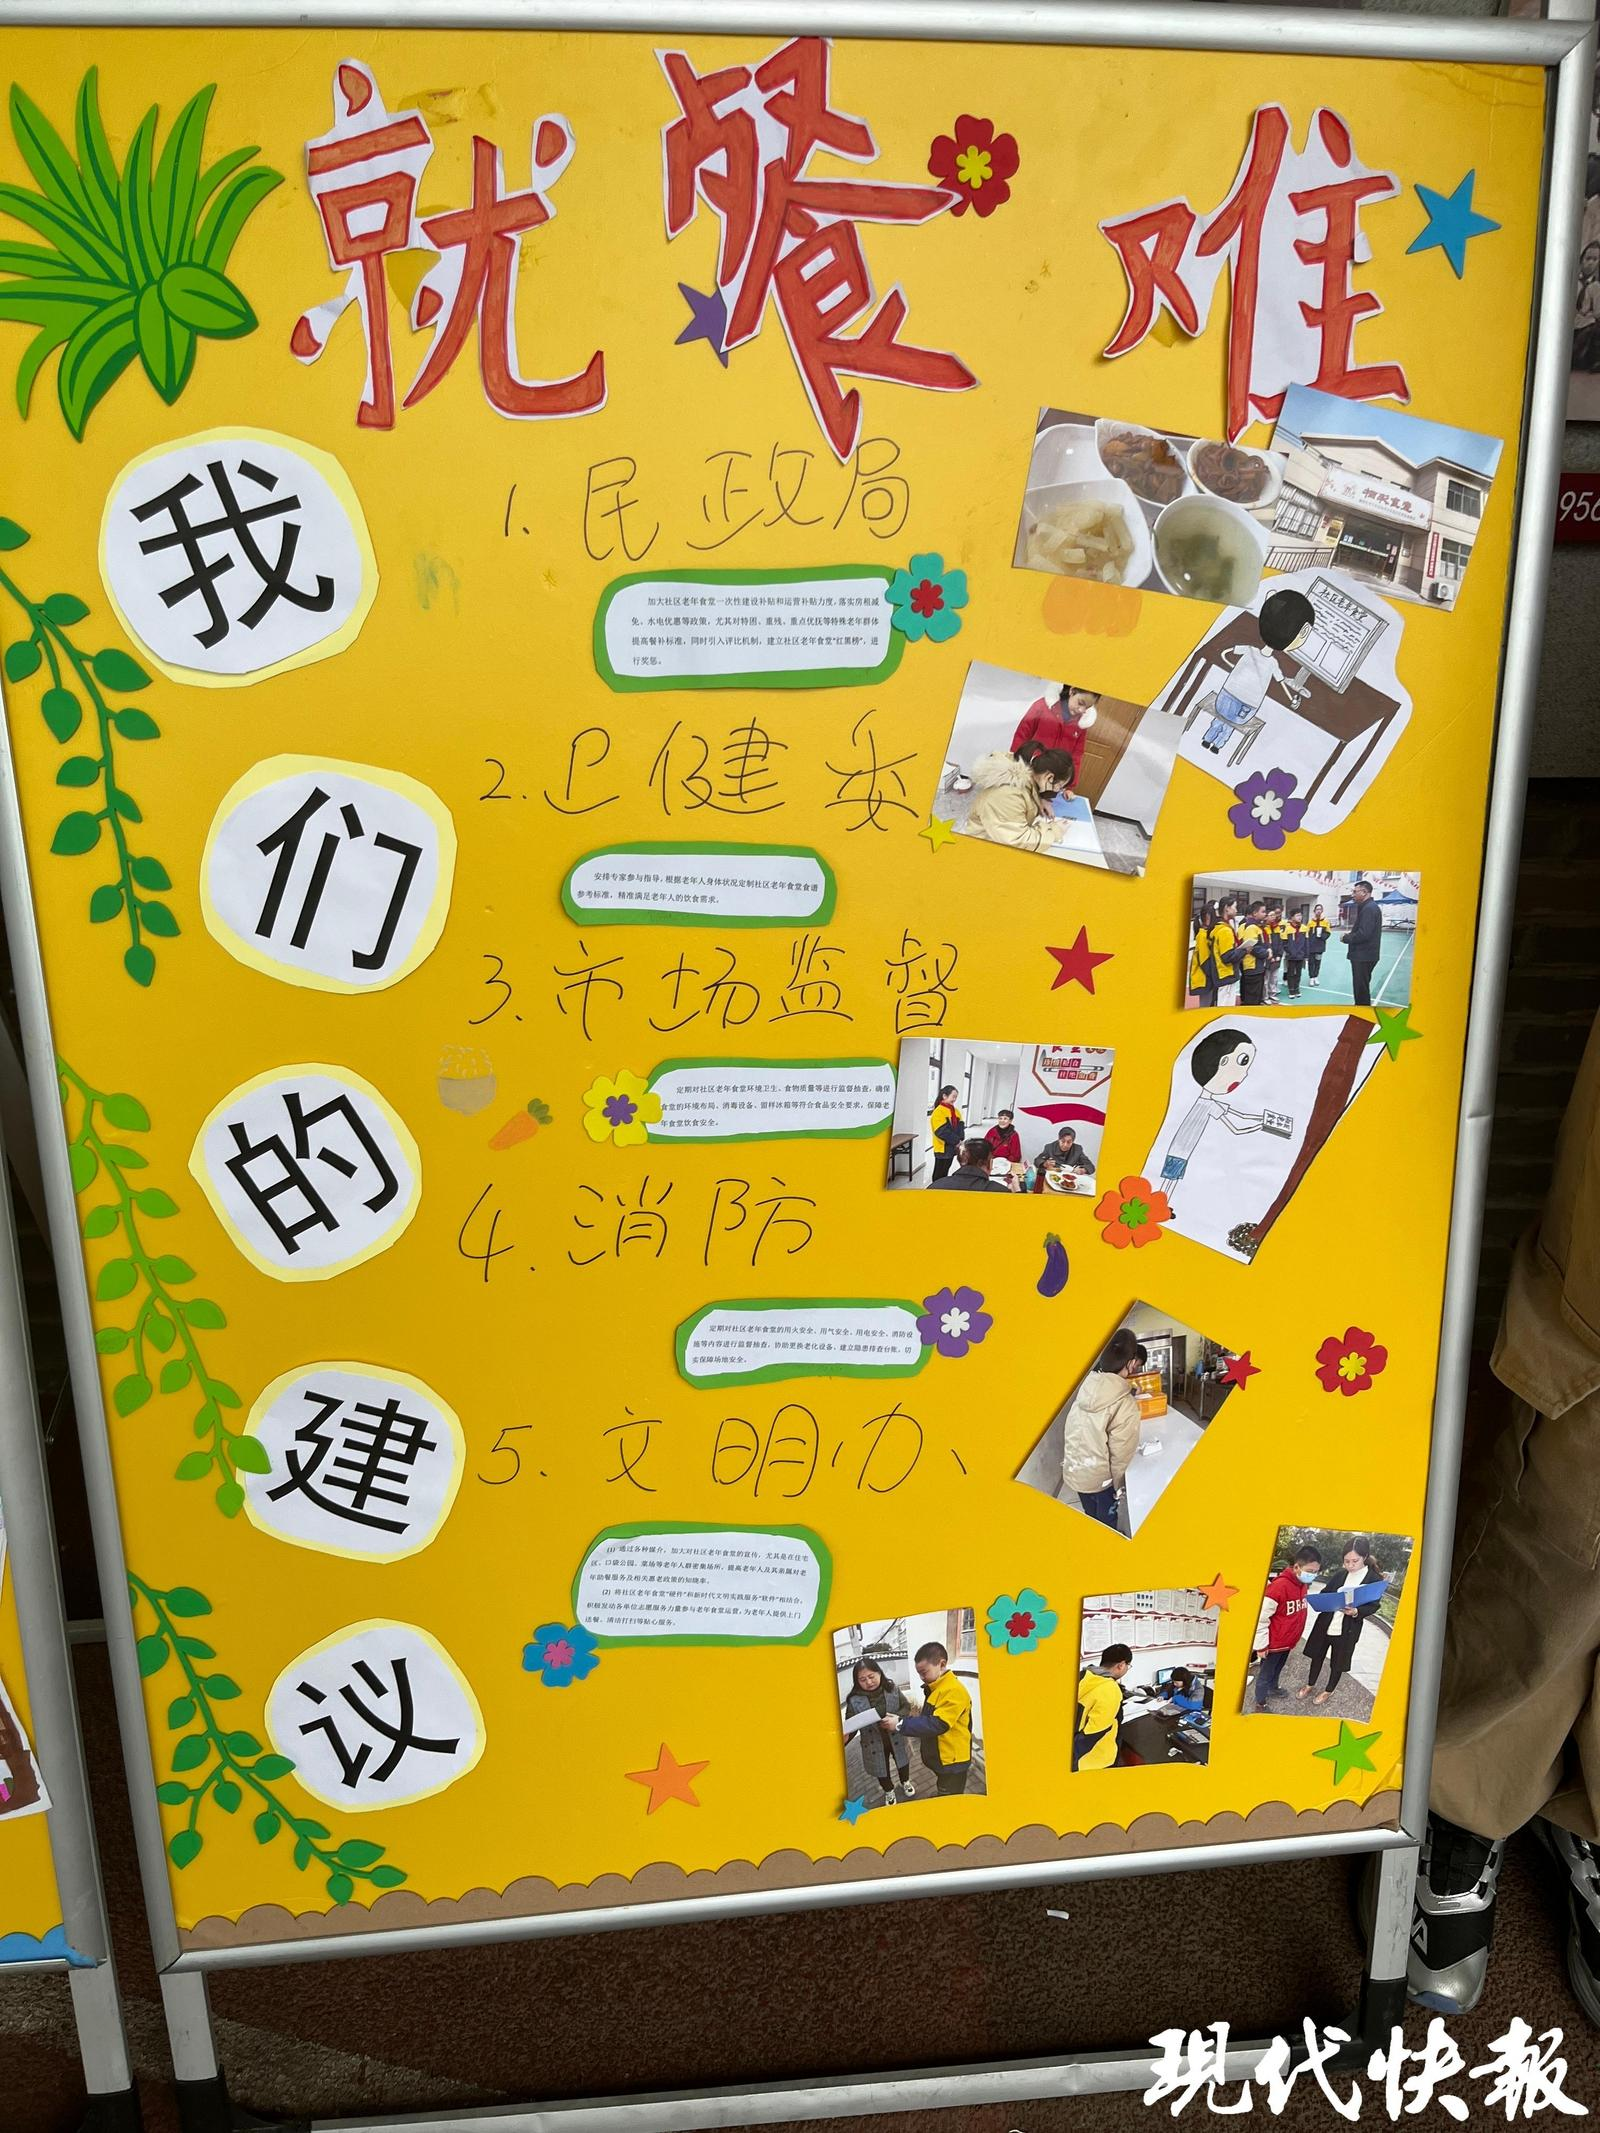 就餐难
我们的建议
1. 民政局
加大社区老年食堂一次性建设补贴和运营补贴力度，落实房租减
免、水电优惠等政策，尤其对特困、重残、重点优抚等特殊老年群体
提高餐补标准，同时引入评比机制，建立社区老年食堂“红黑榜”，进
行奖惩。
2. 卫健委
安排专家参与指导，根据老年人身体状况定制社区老年食堂食谱
参考标准，精准满足老年人的饮食需求。
3. 市场监督
定期对社区老年食堂环境卫生、食物质量等进行监督抽查，确保
食堂的环境布局、消毒设备、留样冰箱等符合食品安全要求，保障老
年食堂饮食安全。
4. 消防
定期对社区老年食堂的用火安全、用气安全、用电安全、消防设
施等内容进行监督抽查，协助更换老化设备、建立隐患排查台账，切
实保障场地安全。
5. 文明办
(1) 通过各种媒介，加大对社区老年食堂的宣传，尤其是在住宅
区、口袋公园、菜场等老年人群密集场所，提高老年人及其亲属对老
年助餐服务及相关惠老政策的知晓率。
(2) 将社区老年食堂“硬件”和新时代文明实践服务“软件”相结合，
积极发动各单位志愿服务力量参与老年食堂运营，为老年人提供上门
送餐、清洁打扫等贴心服务。
社区老年食堂
956
现代快报